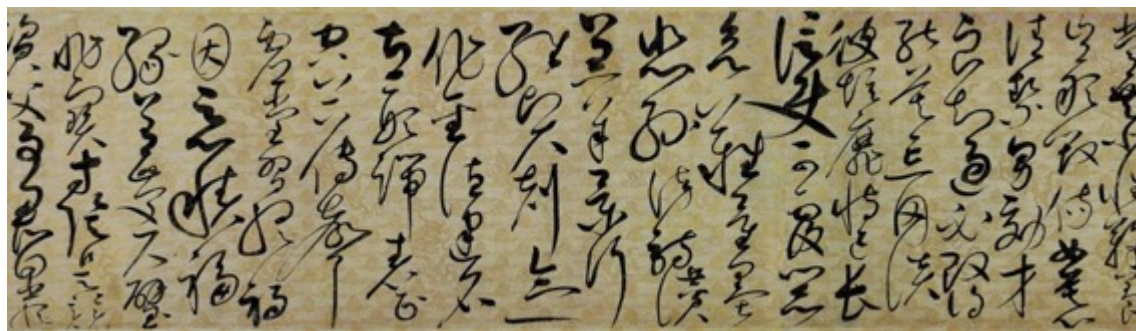 常恭惟鞠養
豈敢毀傷女慕
清絜男效才
良知過必改得
能莫忘罔談
彼短靡恃己長
信使可覆器
欲難量墨
悲絲染詩讚
羔羊景行
維賢剋念
作聖德建名
立形端表正
空谷傳聲
虛堂習聽禍
因惡積福
緣善慶尺璧
非寶寸陰是競
資父事君曰嚴